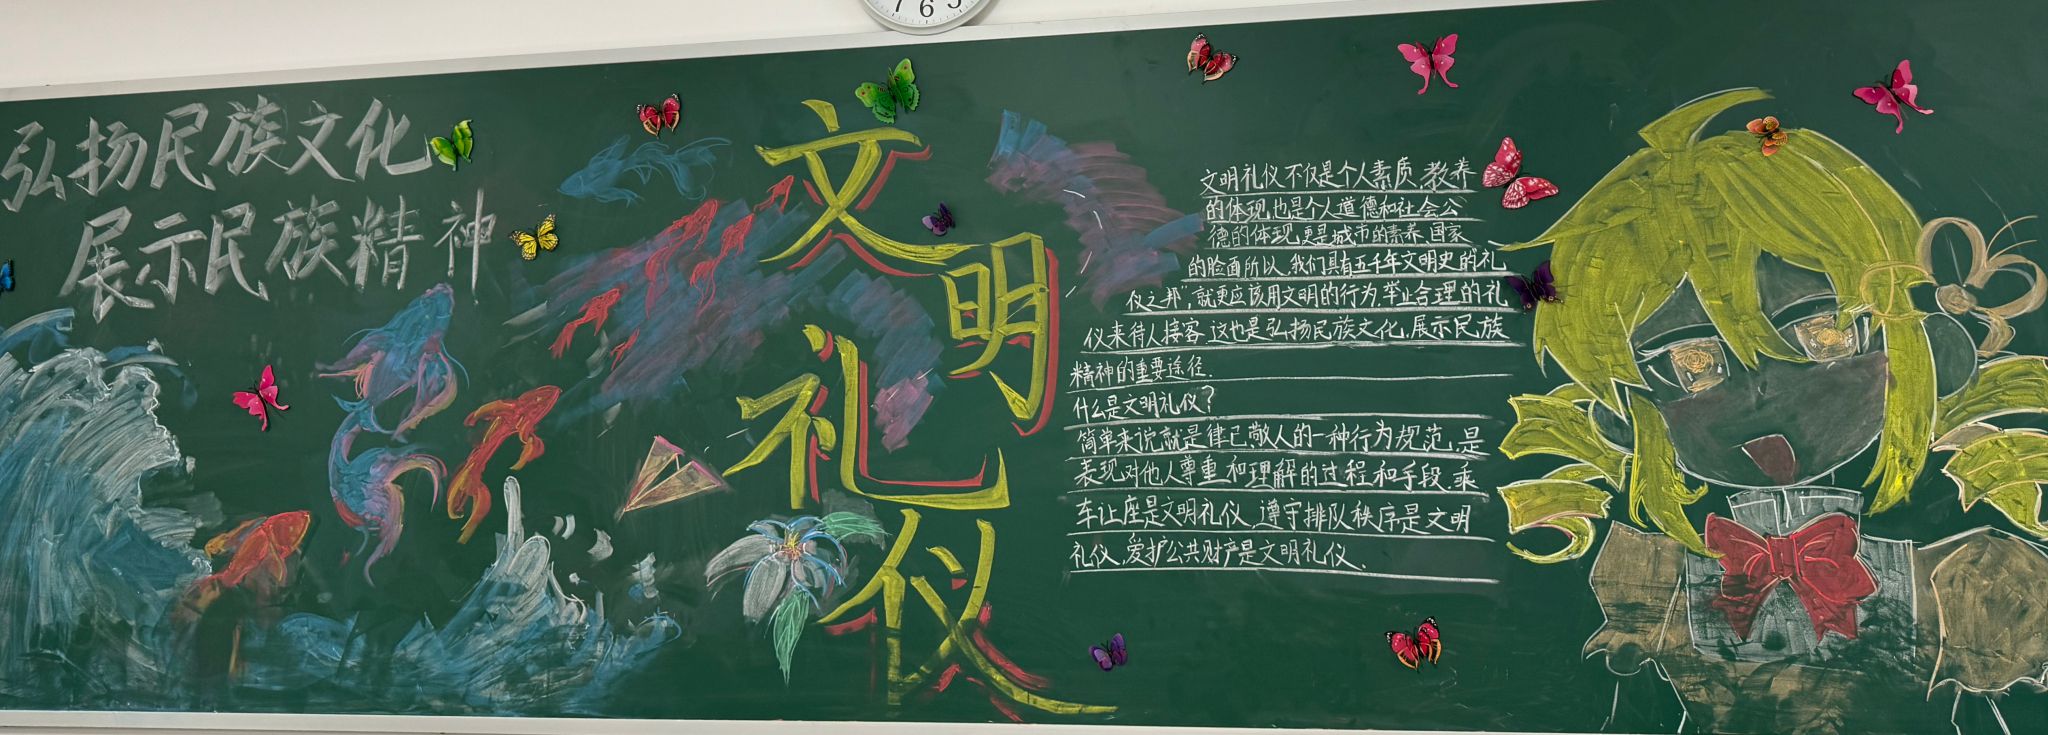 弘扬民族文化
展示民族精神
文明礼仪
文明礼仪不仅是个人素质,教养
的体现,也是个人道德和社会公
德的体现,更是城市的素养、国家
的脸面所以,我们具有五千年文明史的礼
仪之邦,就更应该用文明的行为,举止合理的礼
仪来待人接客,这也是弘扬民族文化,展示民族
精神的重要途径.
什么是文明礼仪?
简单来说就是律己,敬人的一种行为规范,是
表现对他人尊重和理解的过程和手段,乘
车让座是文明礼仪,遵守排队秩序是文明
礼仪,爱护公共财产是文明礼仪.
7 6 5